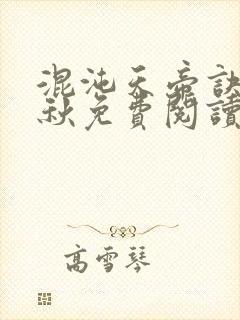 混沌天帝訣
秋免費閱讀
高雪琴